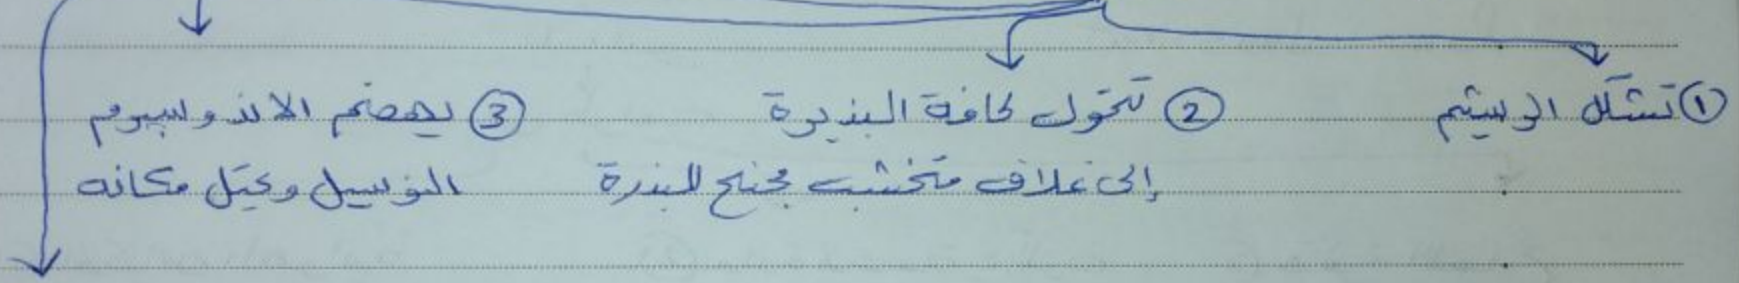 ① تشكل الرشيم
② تتحول لحافة البذيرة
إلى غلاف متخشب مجنح للبذرة
③ يهضم الاندوسبرم
النوسيل ويحتل مكانه